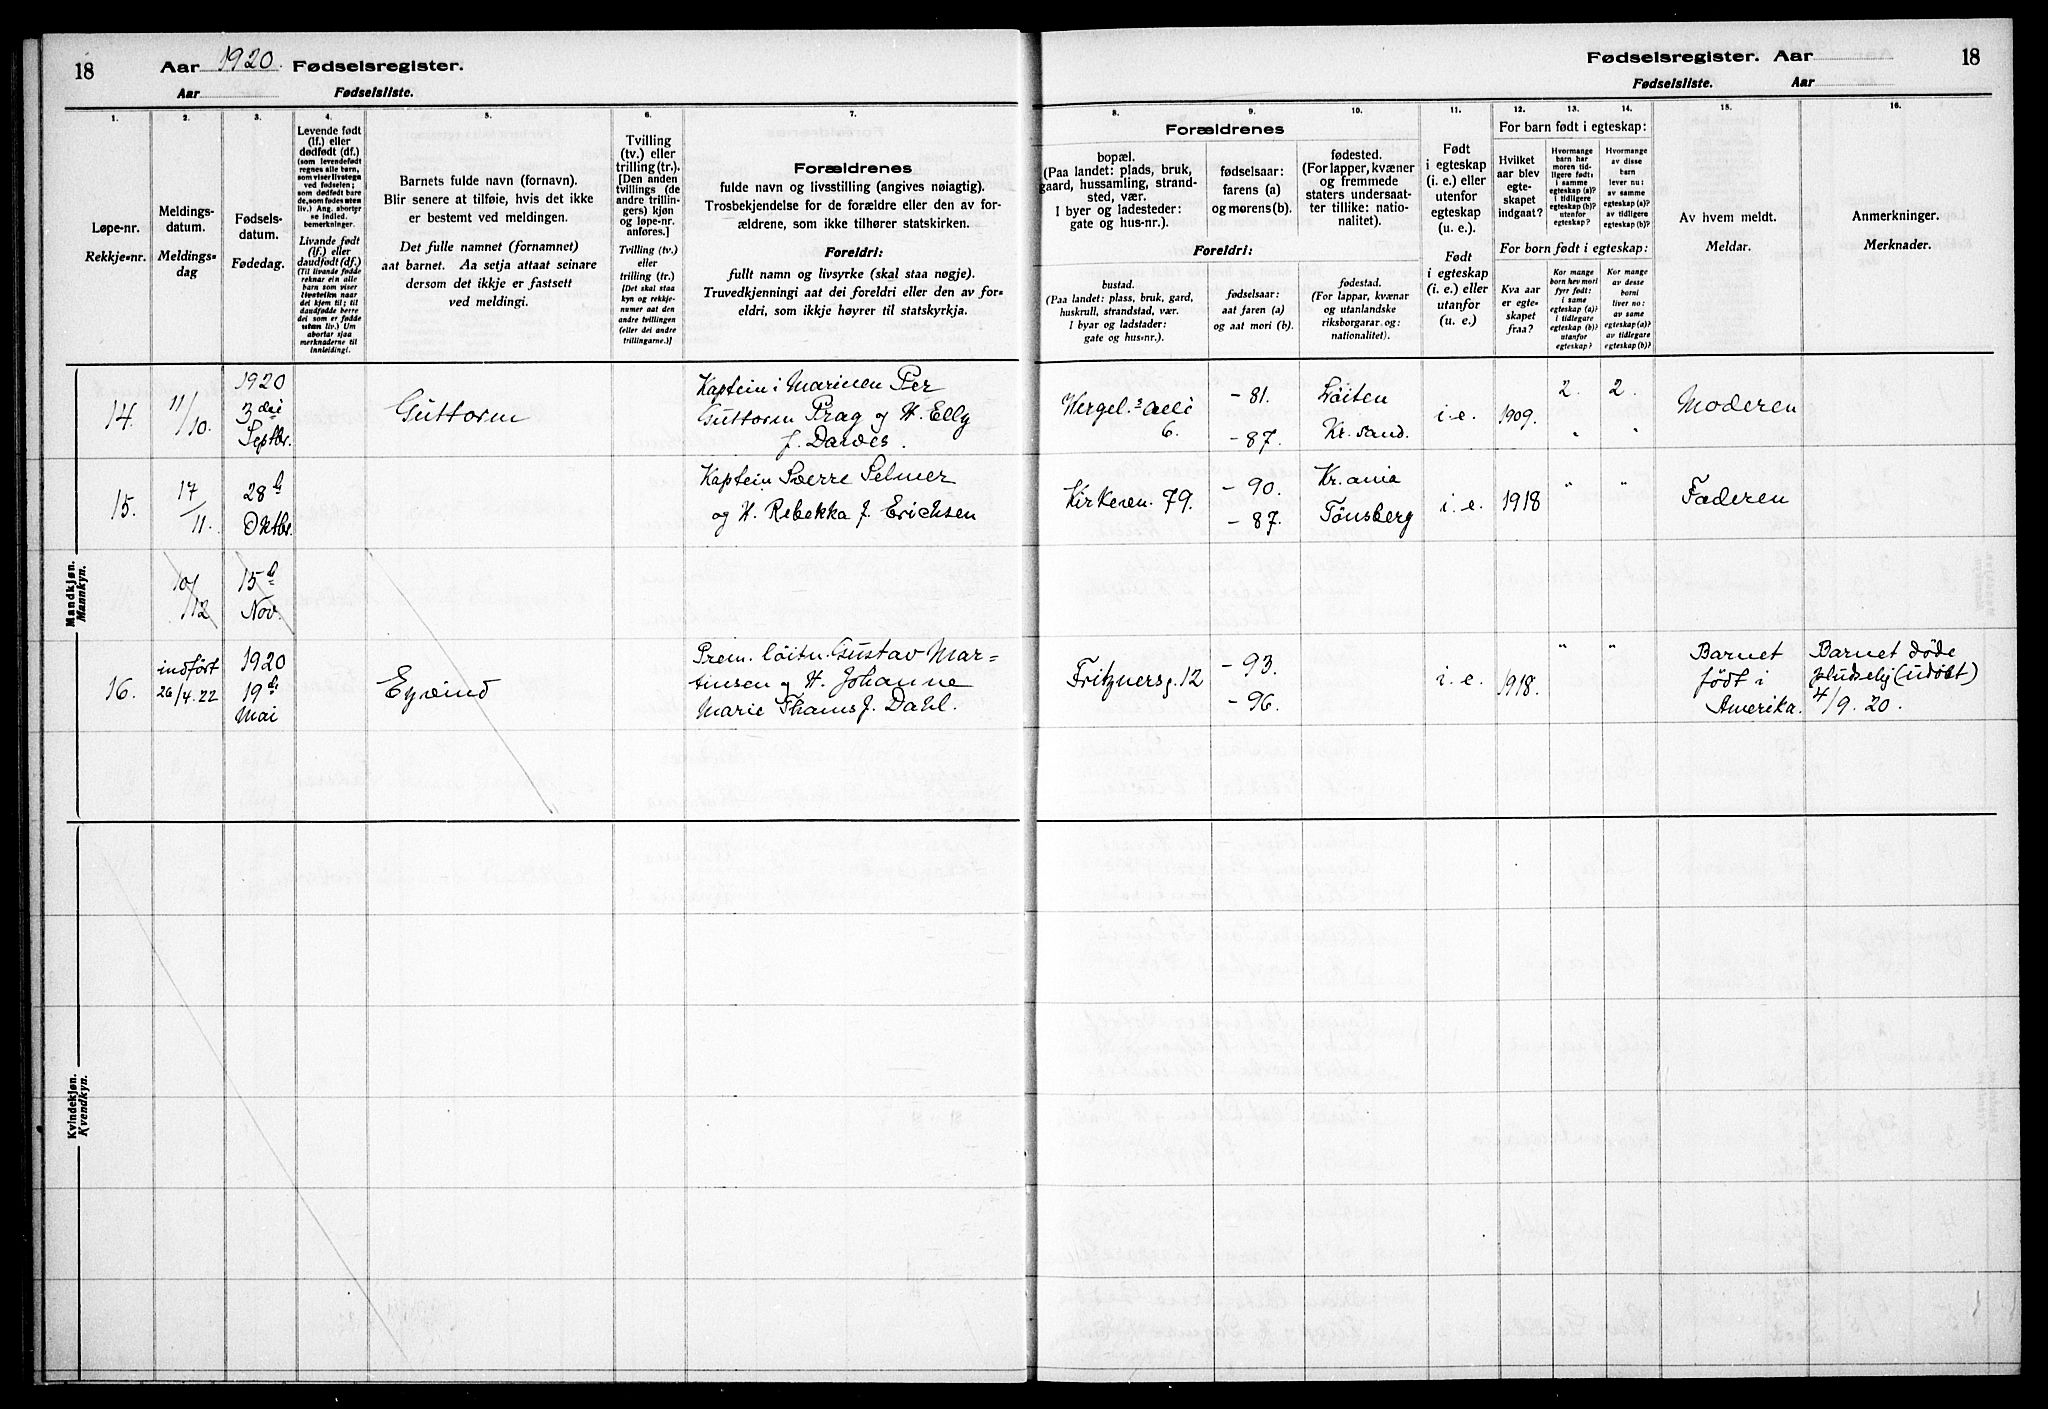 18
Aar 1920. Fødselsregister.
Aar Fødselsliste.
Fødselsregister. Aar
18
Fødselsliste. Aar
1.
2.
3.
4.
5.
6.
7.
8.
9.
10.
11.
12.
13.
14.
15.
16.
Løpe-nr.
Rekkje-nr.
Meldings-
datum.
Meldings-
dag
Fødsels-
datum.
Fødedag.
Levende født
(lf.) eller
dødfødt (df.)
(som levendefødt
regnes alle børn,
som viser livstegn
ved fødselen;
som dødfødt bare
de, som fødes uten
liv.) Ang. aborter
se indled.
bemerkninger.
Livande født
(lf.) eller
daudfødt (df.)
(Til livande fødde
reknar ein alle
barn som viser
livsteikn naar
dei kjem til; til
daudfødde berre
dei som er fødde
utan liv.) Um
abortar sjaa
merknaderne til
innleidingi.
Barnets fulde navn (fornavn).
Blir senere at tilføie, hvis det ikke
er bestemt ved meldingen.
Det fulle namnet (fornamnet)
aat barnet. Aa setja attaat seinare
dersom det ikkje er fastsett
ved meldingi.
Tvilling
(tv.) eller
trilling (tr.).
[Den anden
tvillings (de
andre trillin-
gers) kjøn
og løpe-nr.
anføres.]
Tvilling (tv.)
eller
trilling (tr.)
[Det skal staa
kyn og rekkje-
numer aat den
andre tvillingen
(eller dei andre
trillingarne.)]
Forældrenes
fulde navn og livsstilling (angives nøiagtig).
Trosbekjendelse for de forældre eller den av for-
ældrene, som ikke tilhører statskirken.
Foreldri:
fullt namn og livsyrke (skal staa nøgje).
Truvedkjenningi aat dei foreldri eller den av for-
eldri, som ikkje høyrer til statskyrkja.
Forældrenes
bopæl.
(Paa landet: plads, bruk,
gaard, hussamling, strand-
sted, vær.
I byer og ladesteder:
gate og hus-nr.).
fødselsaar:
farens (a)
og morens (b).
fødested.
(For lapper, kvæner
og fremmede
staters undersaat-
ter tillike: natio-
nalitet).
Foreldri:
bustad.
(Paa landet: plass, bruk, gard,
huskrull, strandstad, vær.
I byar og ladstader:
gate og hus-nr.).
fødselsaar:
aat faren (a)
og aat mori (b).
fødestad.
(For lappar, kvænar
og utanlandske
riksborgarar og:
nationalitet).
Født
i egteskap
(i. e.) eller
utenfor
egteskap
(u. e.).
Født
i egteskap
(i. e.) eller
utanfor
(u. e.).
For barn født i egteskap:
Hvilket
aar blev
egte-
skapet
indgaat?
Hvormange
barn har
moren tid-
ligere født:
i samme
egteskap (a)?
i tidligere
egteskap (b)?
utenfor
egteskap?
Hvormange
av disse
barn
lever nu:
av samme
egteskap (a)?
av tidligere
egteskap (b)?
For born født i egteskap:
Kva aar
er egte-
skapet
fraa?
Kor mange
born hev mori
fyrr født:
i same
egteskap (a)?
i tidlegare
egteskap (b)?
utanfor
egteskap?
Kor mange
av desse
borni
liver no:
av same
egteskap (a)?
av tidlegare
egteskap (b)?
Av hvem meldt.
Meldar.
Anmerkninger.
Merknader.
Mandkjøn.
Mannkyn.
14. 11/10. 1920 3die Septbr. Guttorm
Kaptein i Marinen Per
Guttorm Prag og H. Elly
f. Darves.
Hergel. s alle 6. - 81. - 87. Löiten Kr. sand. i. e. 1909. 2. " 2. " Moderen
15. 17/11. 28 Oktbr.
Kaptein Sverre Selmer
og H. Rebekka f. Erichsen
Kirkeven. 79. - 90. - 87. Kr. ania Tönsberg i. e. 1918 " " Faderen
10/12 15 Nov.
16. indført 26/4.22 1920 19de Mai Eyvind
Prem. löitn. Gustav Mar-
tinsen og H. Johanne
Marie Thams f. Dahl.
Fritznersg. 12 - 93. - 96. i. e. 1918. " "
Barnet
født i
Amerika.
Barnet døde
pludselig (udöbt)
4/9. 20.
Kvindekjøn.
Kvendkyn.